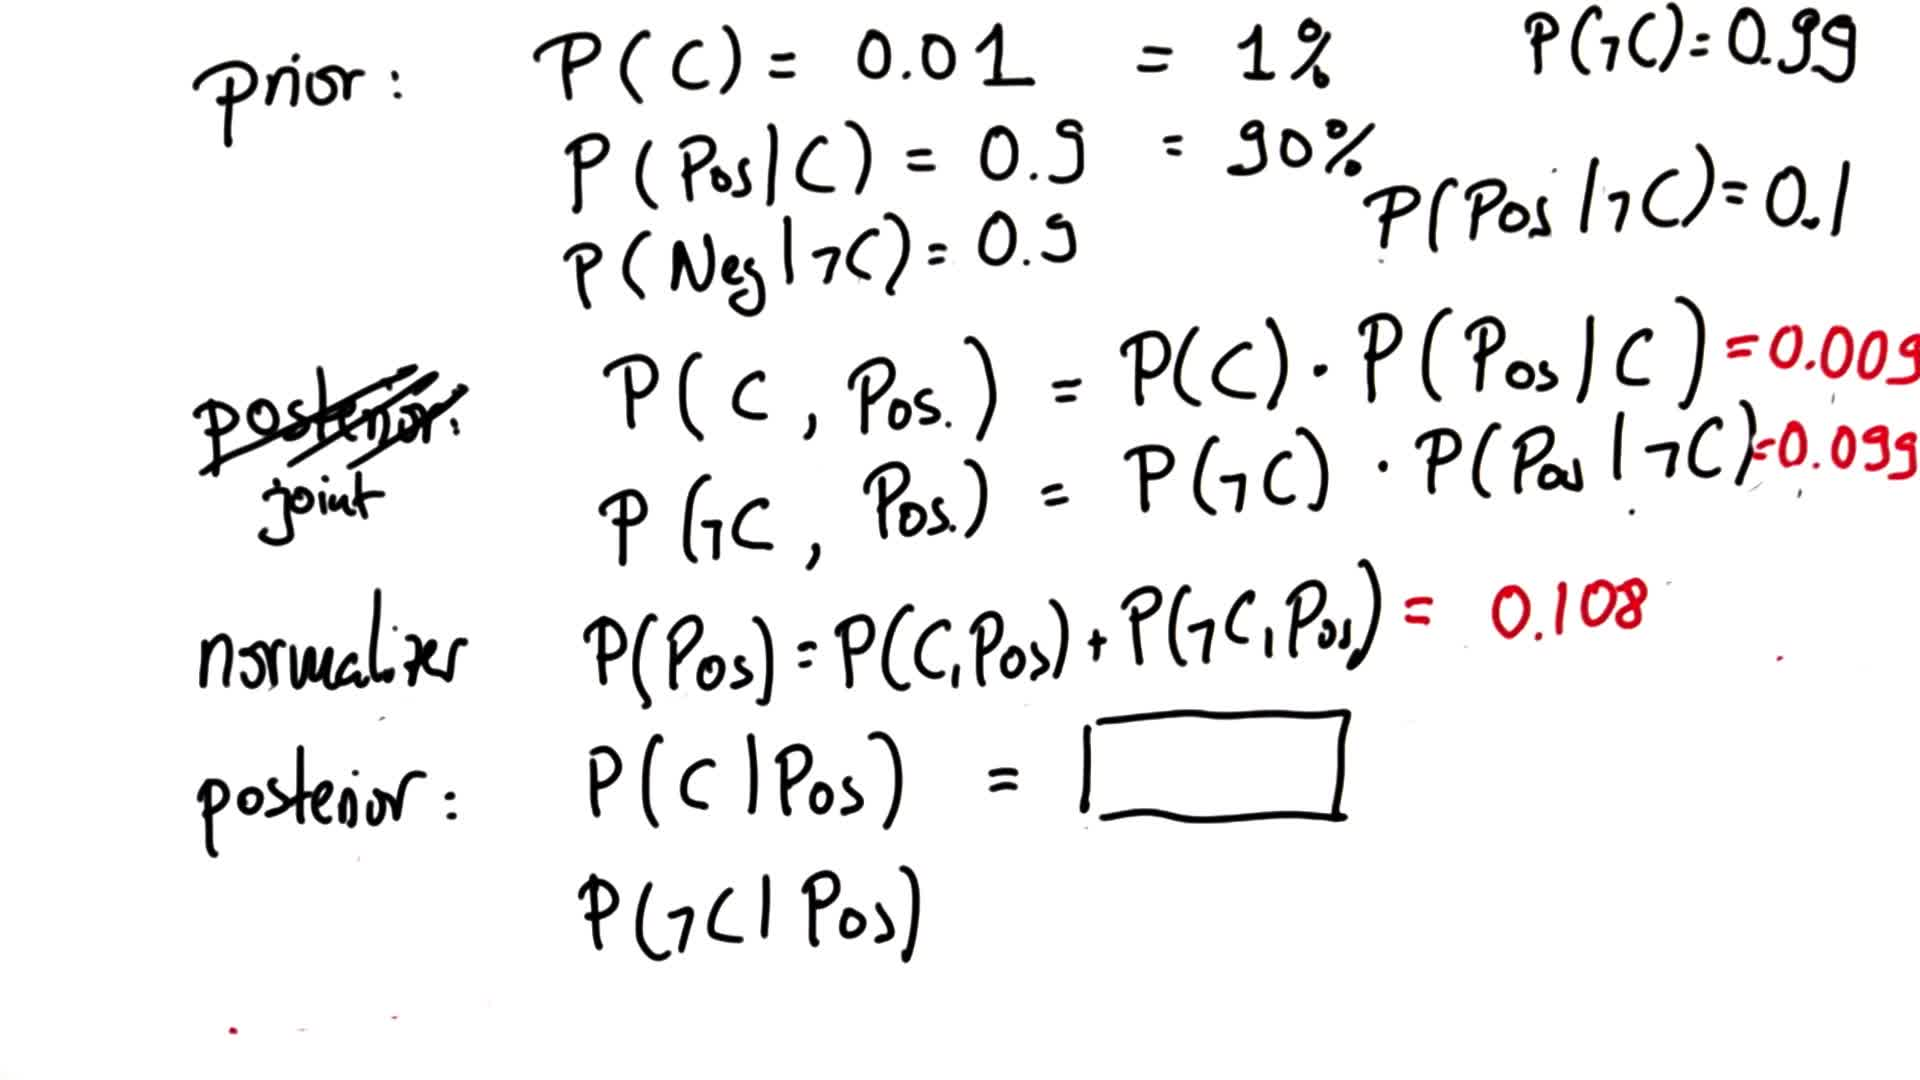 prior: P(C) = 0.01 = 1% P(¬C)=0.99
P(Pos|C) = 0.9 = 90%
P(Pos|¬C)=0.1
P(Neg|¬C)= 0.9
posterior: P(C, Pos.) = P(C) · P(Pos|C) =0.009
joint P(¬C, Pos.) = P(¬C) · P(Pos|¬C)=0.099
normalizer P(Pos) = P(C,Pos) + P(¬C,Pos) = 0.108
posterior: P(C|Pos) =
P(¬C|Pos)